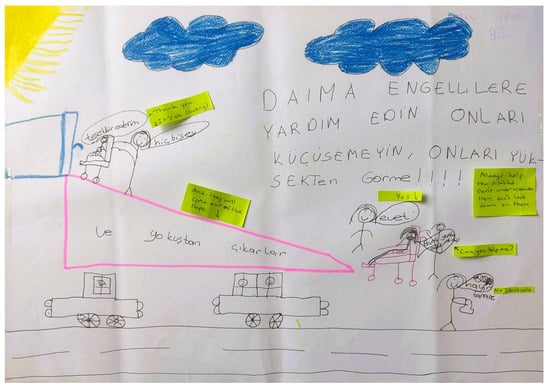 DAIMA ENGELLİLERE
YARDIM EDİN ONLARI
KÜÇÜSEMEYİN, ONLARI YÜK-
SEKTEN Görme!!!!!
teşekkür ederim
Thank you
hiçbişey
And they will
come out of the
slope
ve yokuştan çıkarlar
Yes ↓
evet
Always help
the disabled
Don't underestimate
them, don't look
down on them
Can you help me?
hayır